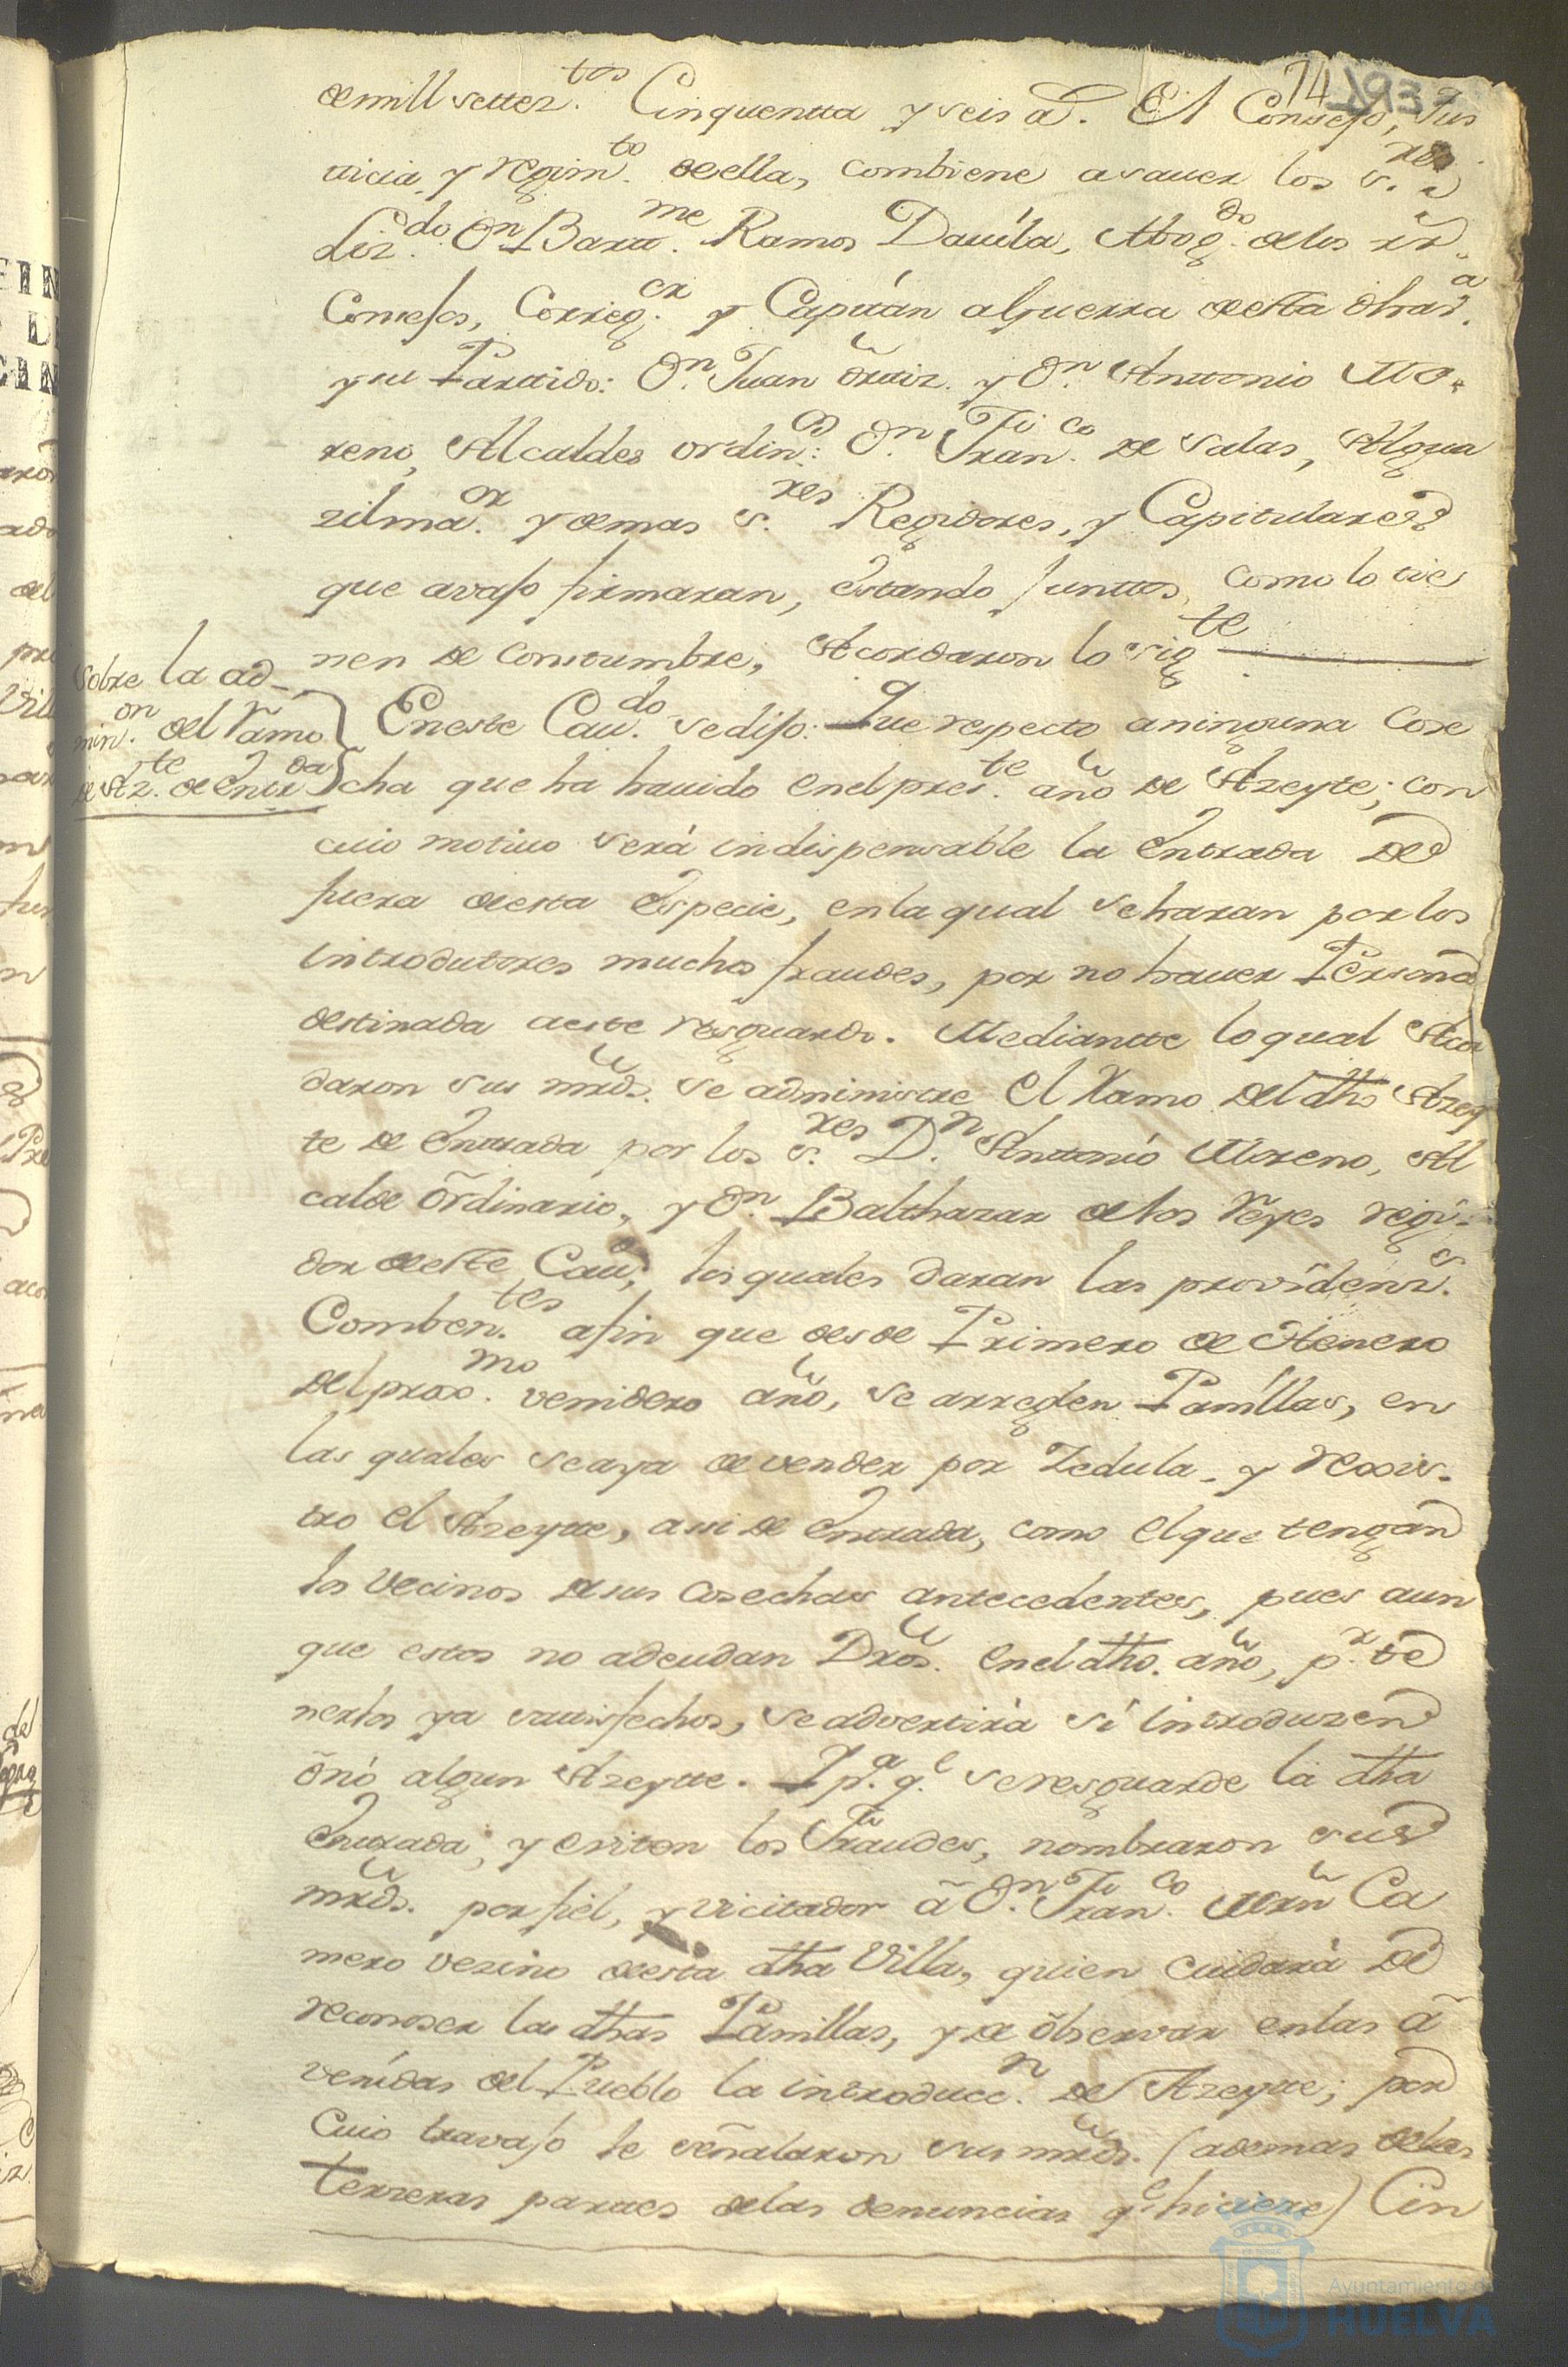 74 193
de mill settez.tos Cinquentta y seis a.s El Consejo, Jus
ticia y regim.to de ella, combiene a sauer los s.res
Liz.do D.n Bartt.me Ramos Dauila, Abog.do de los rs.
Consejos, Correg.or y Capitán a guerra de esta dha v.a
y su Parttido: D.n Juan Orttiz y D.n Anttonio Mo-
reno, Alcaldes ordin.os: D.n Fran.co de Salas, Algua
zil ma.or y demas s.res Regidores, y Capitulares
que avajo firmaran, estando junttos, como lo tie
nen de Constumbre, Acordaron lo sig.te
Sobre la ad-
min.on del Ramo
de Az.te de Entr.da
En este Cau.do se dijo: Que respecto a ninguna Cose
cha que ha hauido en el pres.te año de Azeyte; con
cuio motiuo será indispensable la Entrada de
fuera de esta Especie, en la qual se haran por los
introdutores muchos fraudes, por no hauer Persona
destinada a este resguardo. Mediantte lo qual Acor
daron sus mrds. se administre el Ramo del dho Azey
te de Enttrada por los s.res D.n Anttonio Moreno, Al
calde Ordinario, y D.n Balthazar de los Reyes regi-
dor de este Cau.o, los quales daran las providenz.s
Comben.tes a fin que desde Primero de Henero
del prox.mo venidero año, se arreglen Panillas, en
las quales se aya de vender por Zedula, y rexis-
tro el Azeytte, assi de Entrada, como el que tengan
los Vecinos de sus Cosechas antecedentes, pues aun
que estos no adeudan Dros. en el dho. año, p.r te
nerlos ya sattisfechos, se advertirá si introduzen
ó nó algun Azeytte. I p.a q.e se resguarde la dha
Enttrada, y eviten los Fraudes, nombraron sus
mrds. por fiel, y vicitador á D.n Fran.co Mrn Ca
mero vezino de esta dha Villa, quien cuidará de
reconoser las dhas Panillas, y de observar en las a
venidas del Pueblo la introducc.n de Azeytte; por
Cuio travajo le señalaron sus mrds. (ademas de las
terzeras parttes de las denuncias q.e hiciere) Cin
Ayuntamiento de
HUELVA